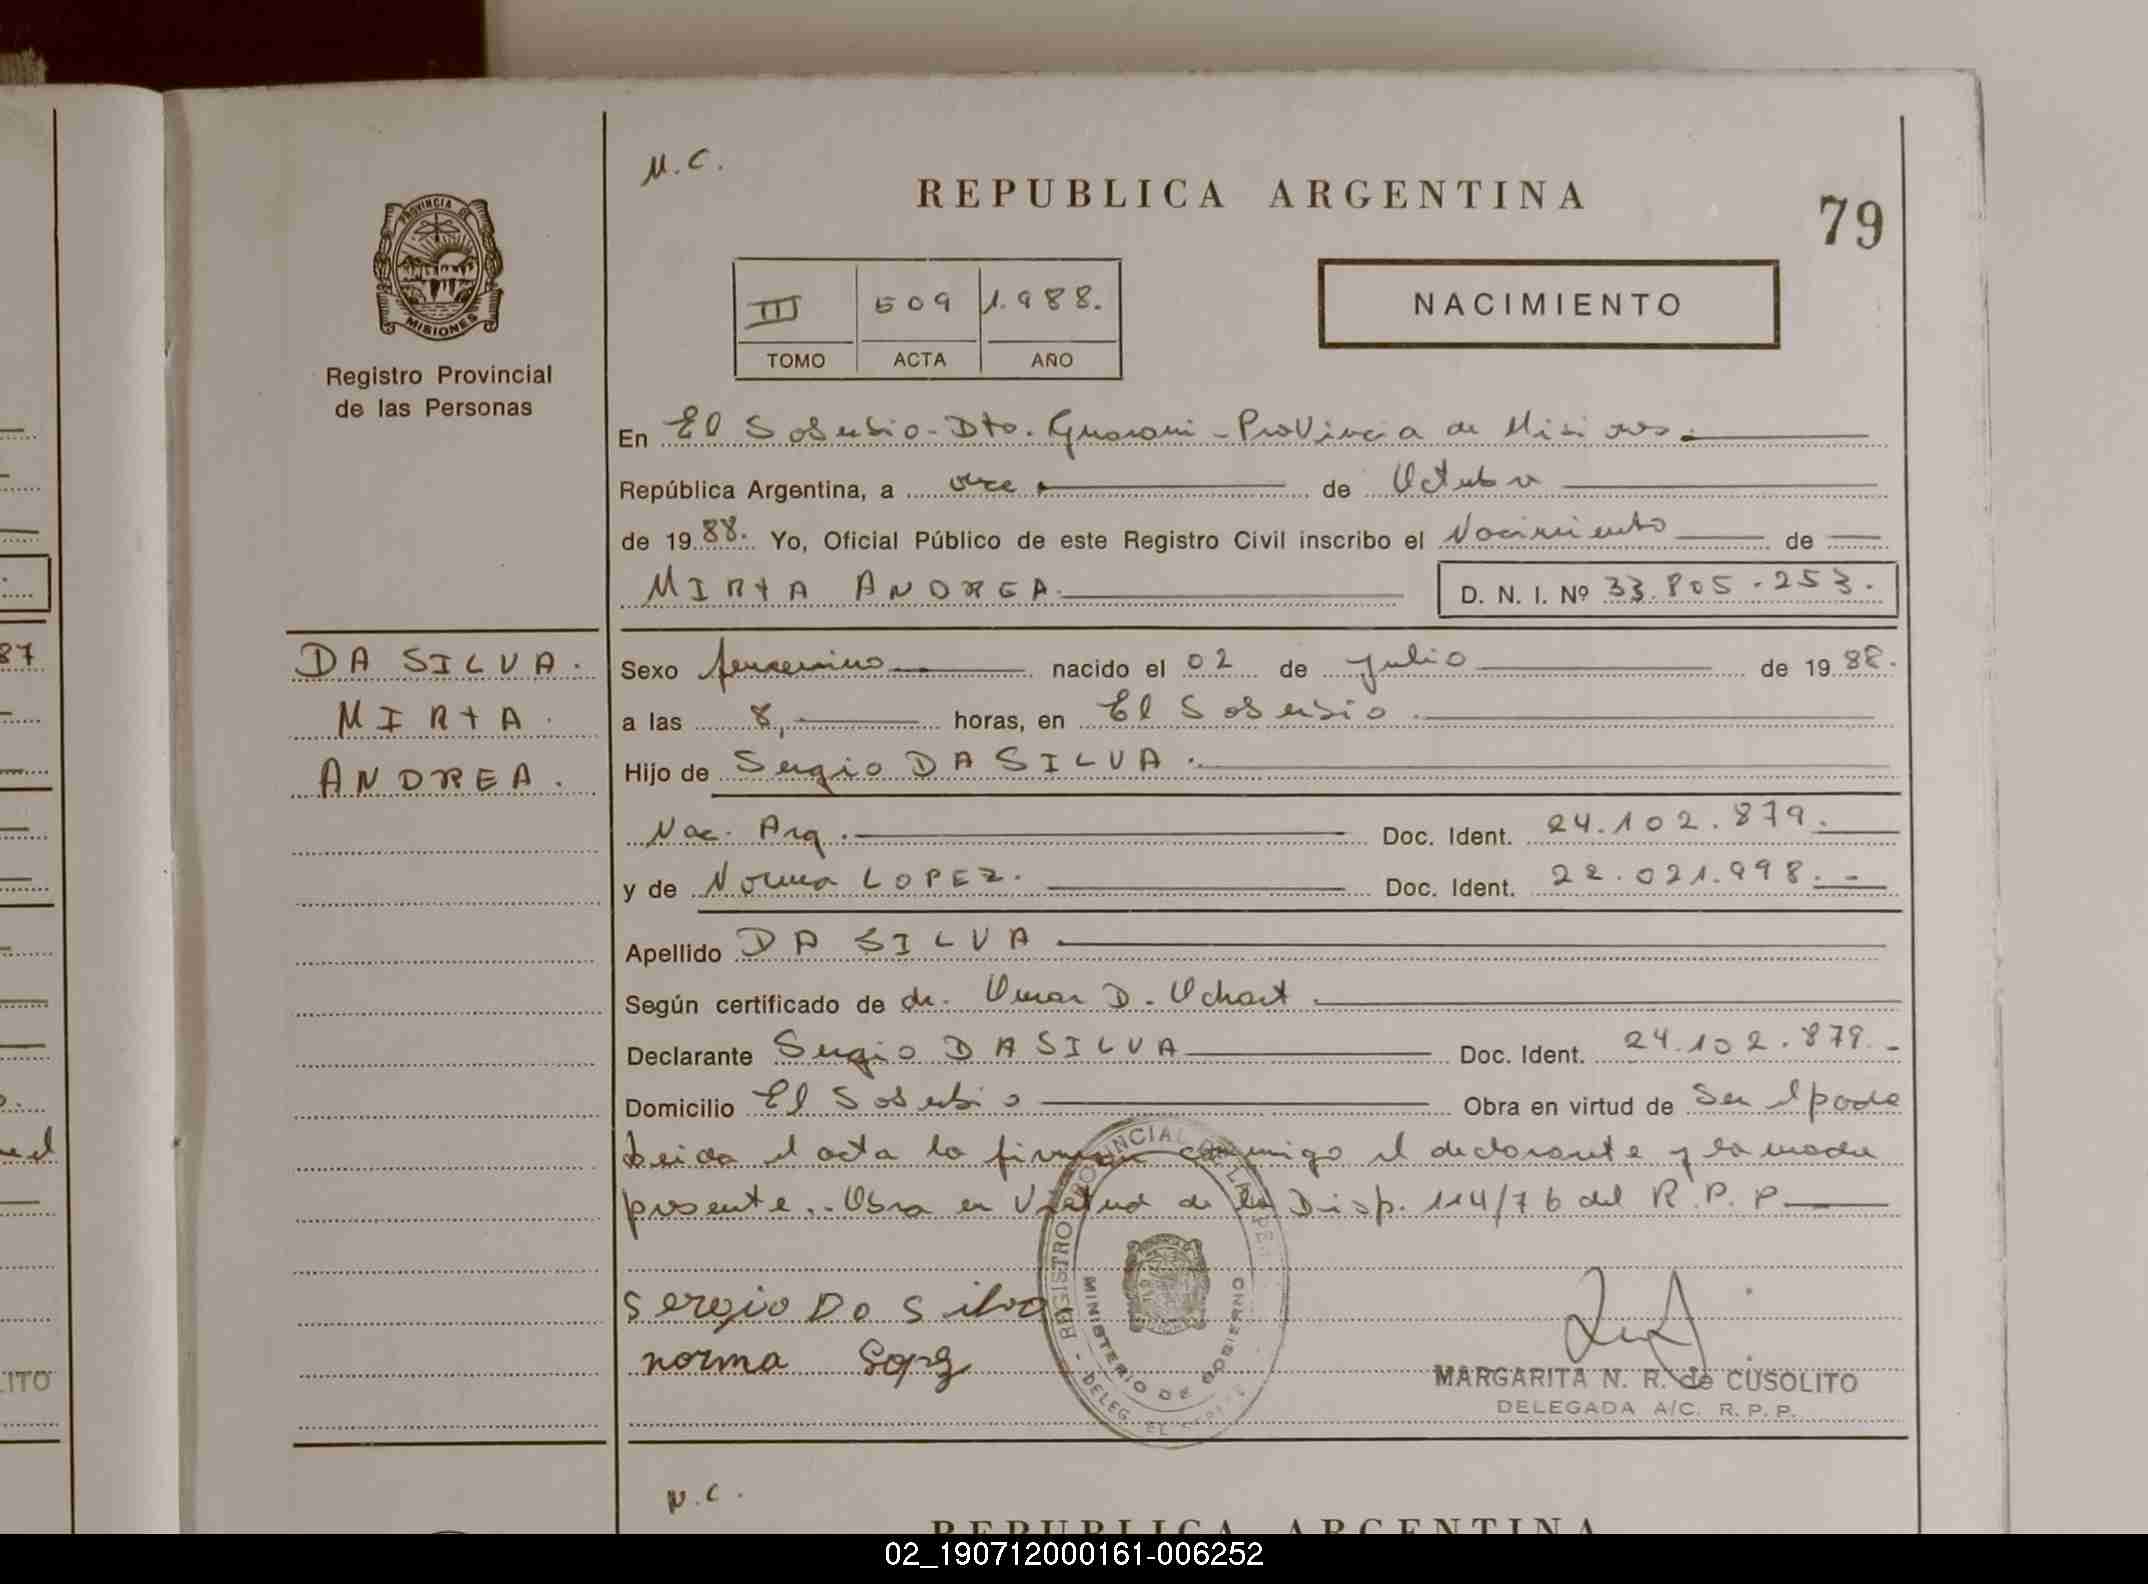 M.C.
REPUBLICA ARGENTINA
79
PROVINCIA DE
MISIONES
Registro Provincial
de las Personas
III 509 1.988.
TOMO ACTA AÑO
NACIMIENTO
En El Soberbio - Dto. Guarani - Provincia de Misiones.
República Argentina, a once de Octubre
de 19 88. Yo, Oficial Público de este Registro Civil inscribo el Nacimiento de
MIRTA ANDREA.
D. N. I. Nº 33.805.253.
DA SILVA.
MIRTA.
ANDREA.
Sexo femenino nacido el 02 de julio de 19 88.
a las 8, horas, en El Soberbio.
Hijo de Sergio DA SILVA.
Nac. Arg. Doc. Ident. 24.102.879.
y de Norma LOPEZ. Doc. Ident. 22.021.998.-
Apellido DA SILVA
Según certificado de dr. Omar D. Ochart
Declarante Sergio DA SILVA Doc. Ident. 24.102.879.-
Domicilio El Soberbio Obra en virtud de Ser el padre
Leida el acta la firman conmigo el declarante y la madre
presente.. Obra en Virtud de la Disp. 114/76 del R.P.P
Sergio Da Silva
norma Lopez
REGISTRO PROVINCIAL DE LAS PER
MINISTERIO DE GOBIERNO
DELEG. EL
MARGARITA N. R. de CUSOLITO
DELEGADA A/C. R. P. P.
N.C.
REPUBLICA ARGENTINA
87
ITO
02_190712000161-006252